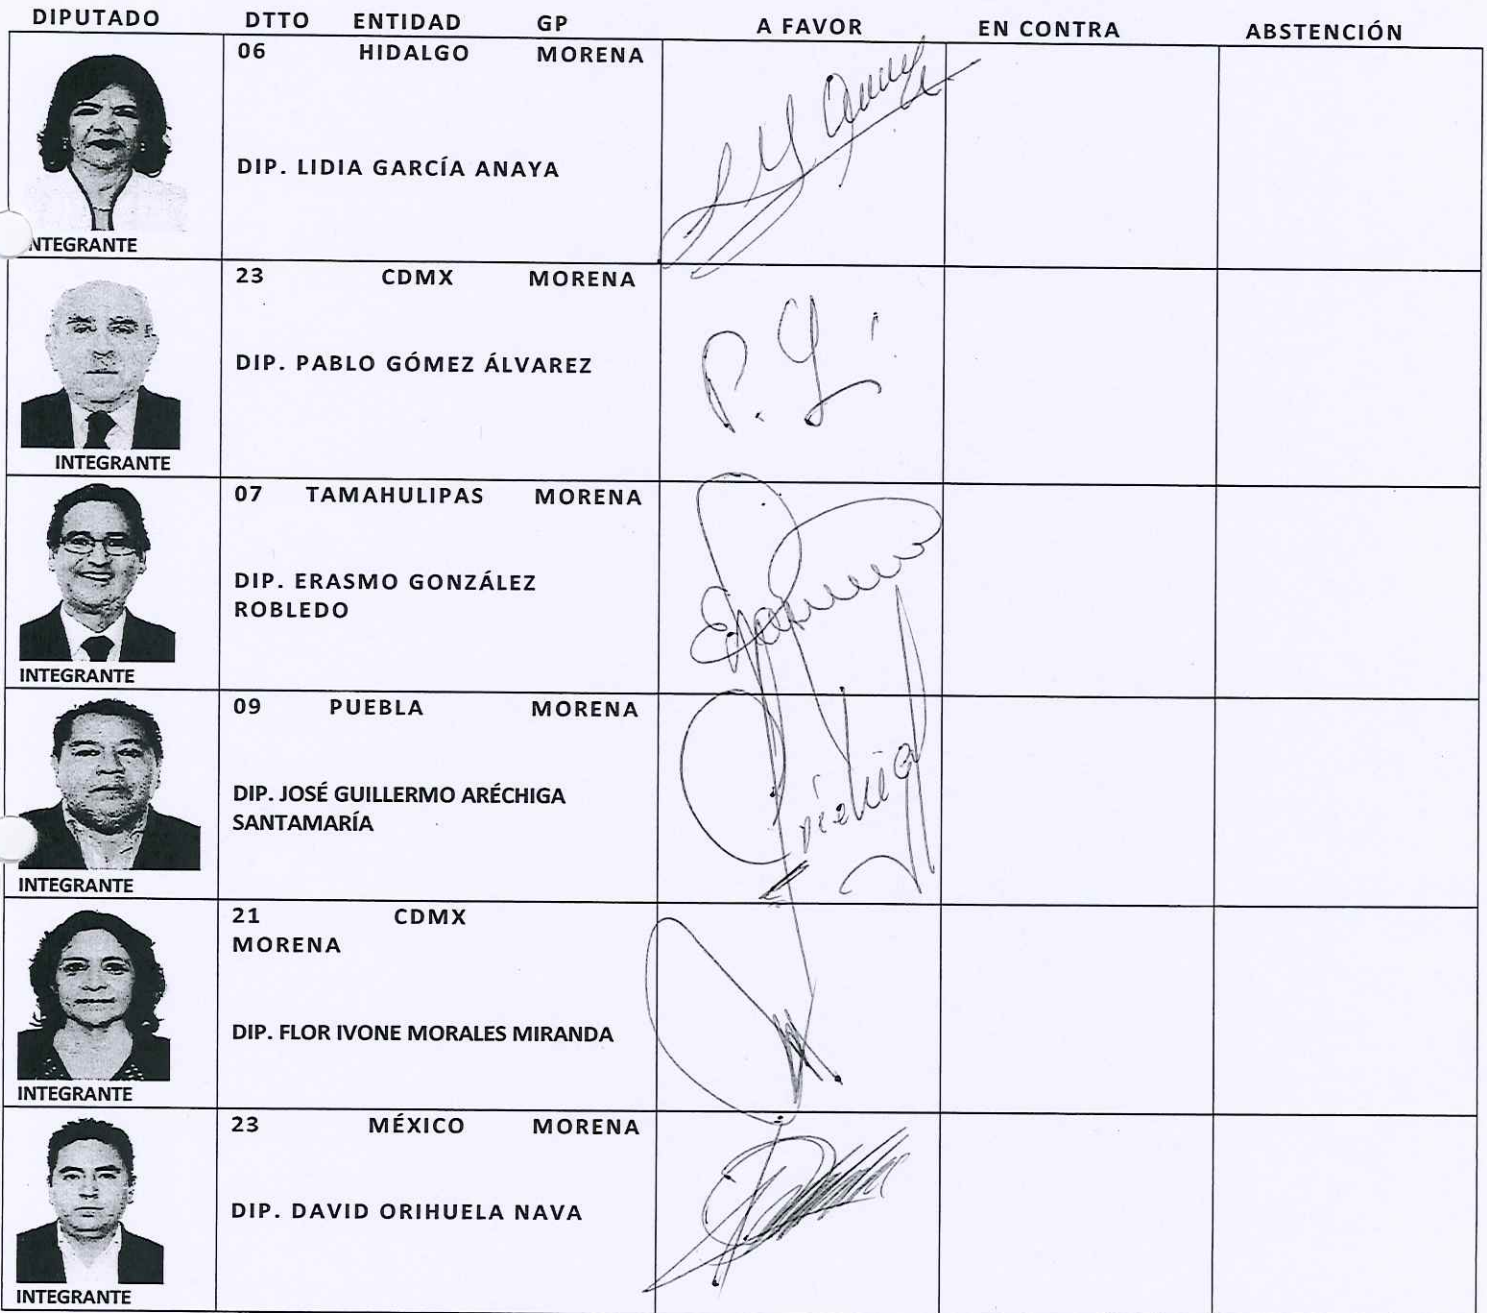 DIPUTADO DTTO ENTIDAD GP A FAVOR EN CONTRA ABSTENCIÓN
06 HIDALGO MORENA
DIP. LIDIA GARCÍA ANAYA
NTEGRANTE
23 CDMX MORENA
DIP. PABLO GÓMEZ ÁLVAREZ
P. G
INTEGRANTE
07 TAMAHULIPAS MORENA
DIP. ERASMO GONZÁLEZ
ROBLEDO
INTEGRANTE
09 PUEBLA MORENA
DIP. JOSÉ GUILLERMO ARÉCHIGA
SANTAMARÍA
INTEGRANTE
21 CDMX
MORENA
DIP. FLOR IVONE MORALES MIRANDA
INTEGRANTE
23 MÉXICO MORENA
DIP. DAVID ORIHUELA NAVA
INTEGRANTE